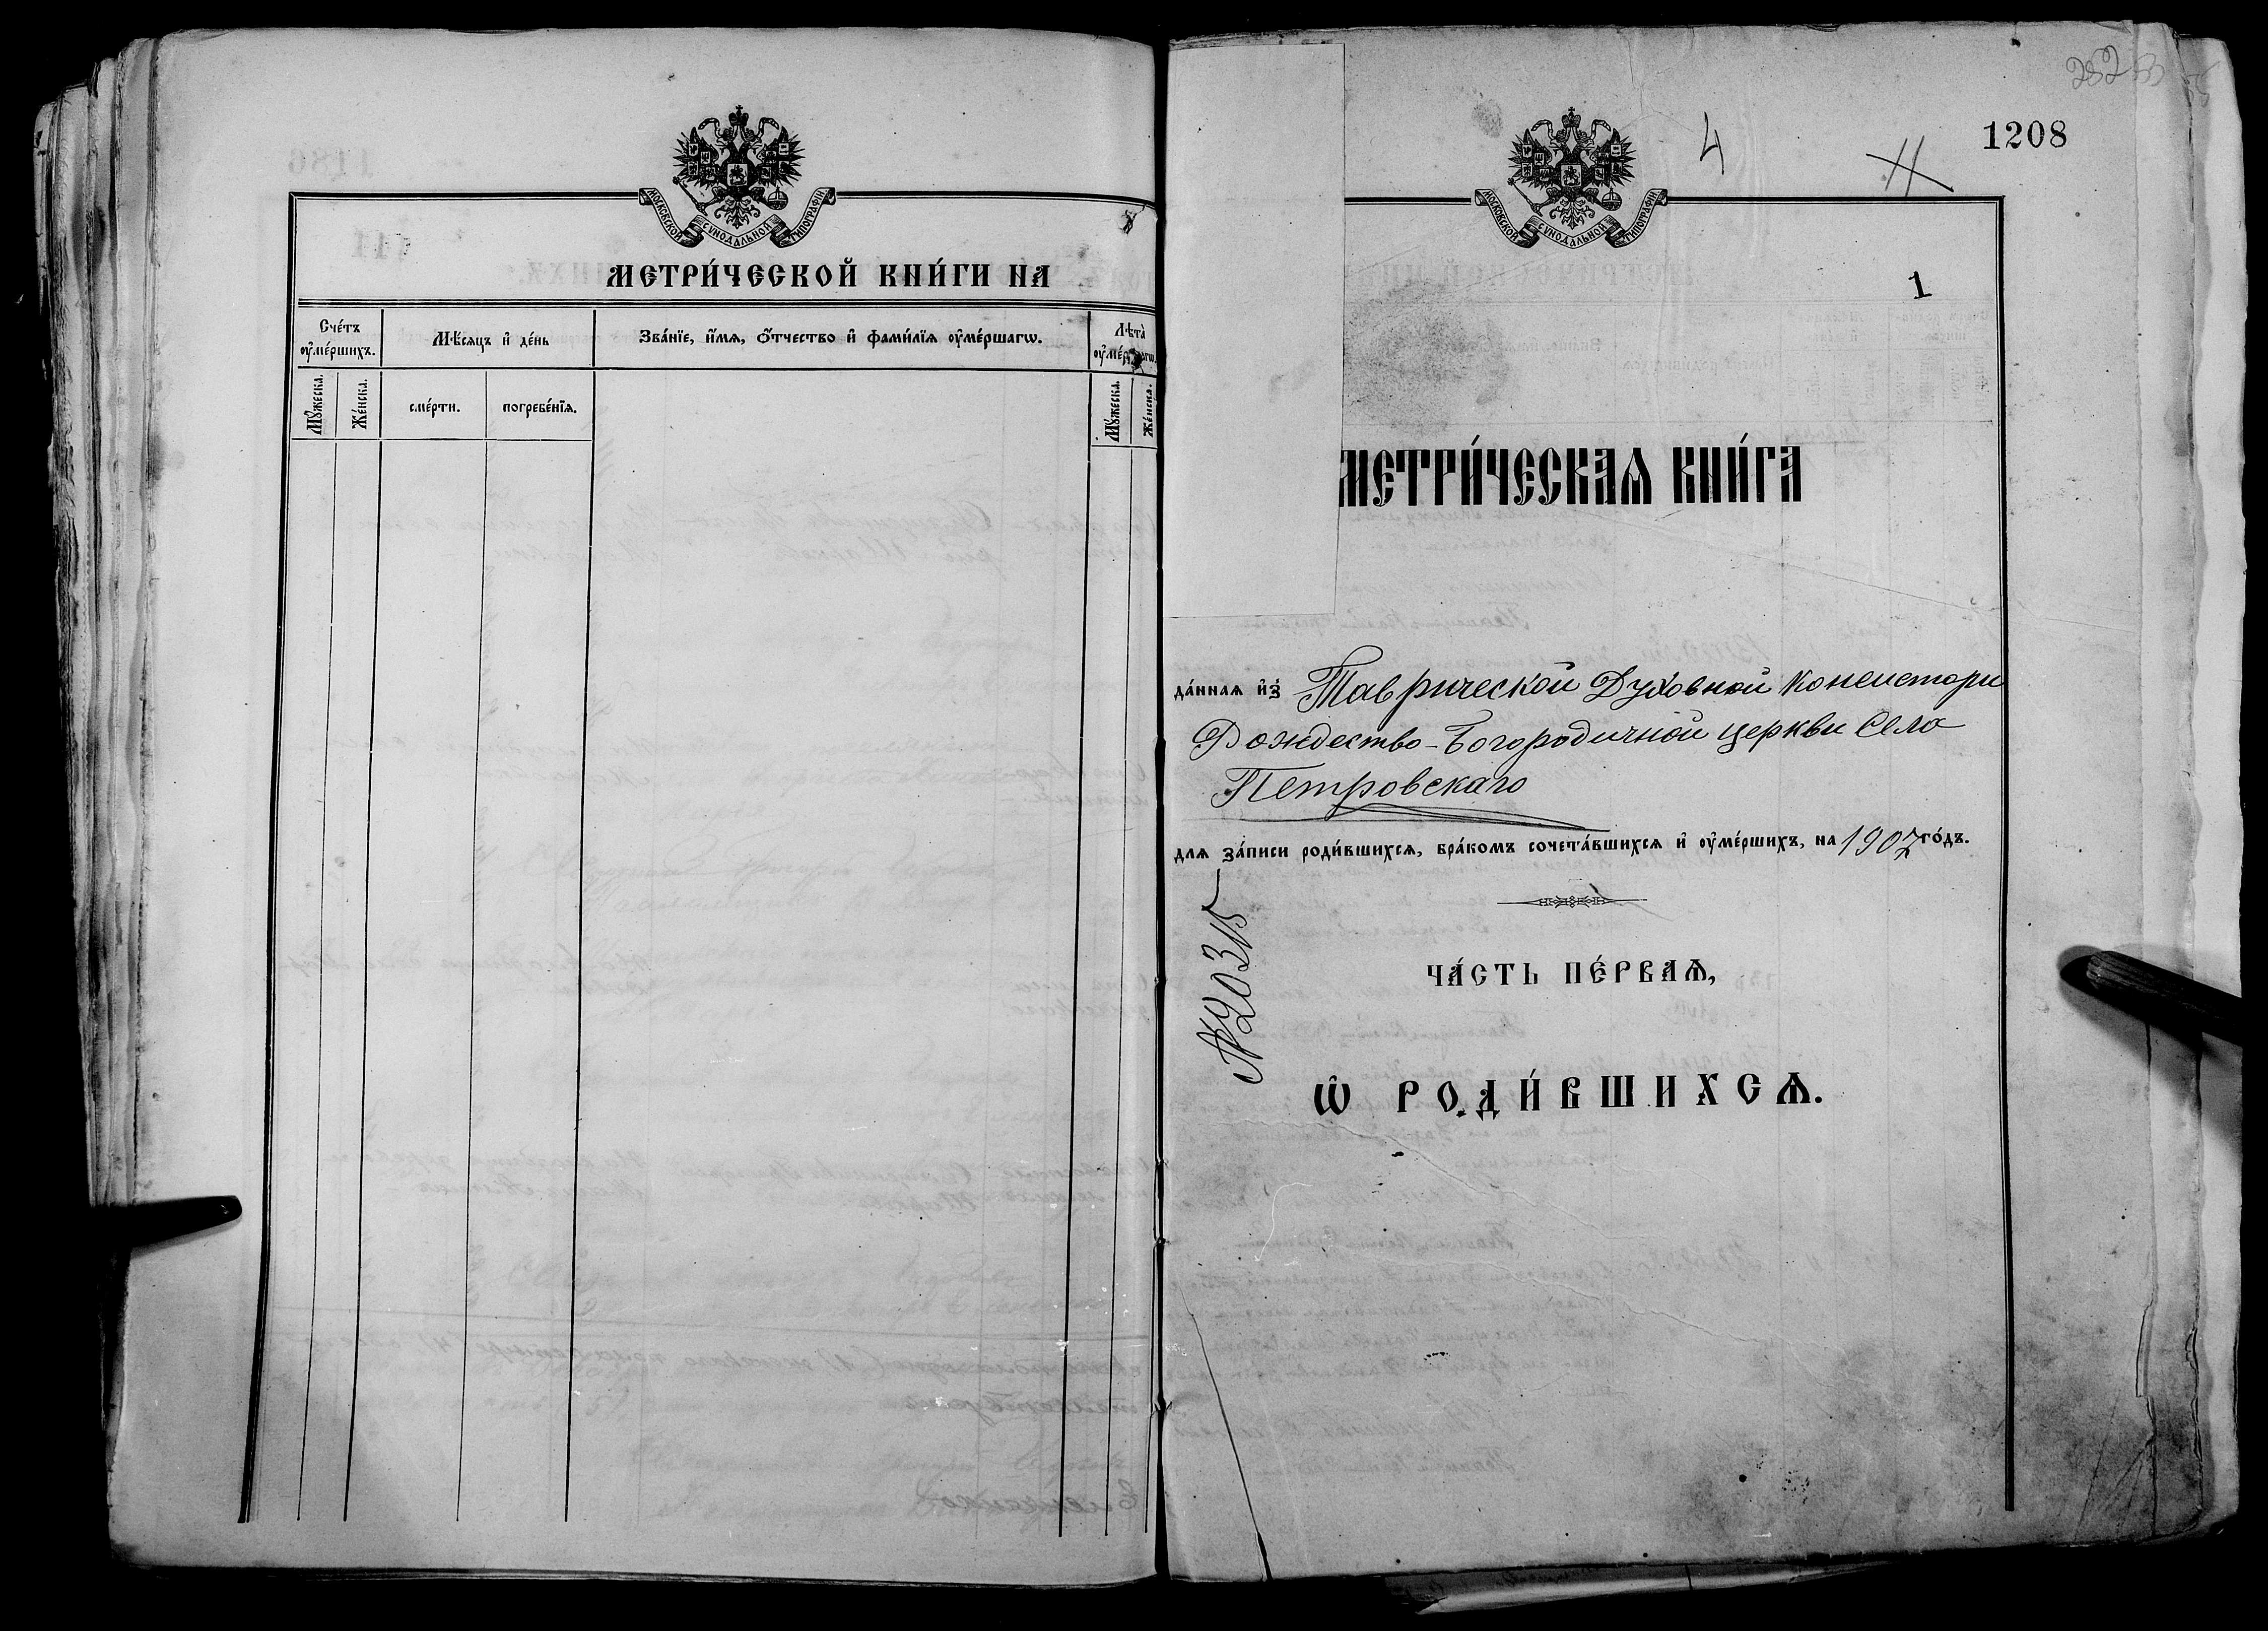 МОСКОВСКОЙ СѴНОДАЛЬНОЙ ТИПОГРАФІИ
МЕТРИ́ЧЕСКОЙ КНИ́ГИ НА
Сче́тъ оу҆ме́ршихъ.
Мѣ́сяцъ и҆ де́нь
Зва́нїе, и҆́мѧ, ѻ҆́тчество и҆ фами́лїѧ оу҆ме́ршагѡ.
Лѣта̀ оу҆ме́ршагѡ.
Мꙋ́жеска.
Же́нска.
сме́рти.
погребе́нїѧ.
Мꙋ́жеска.
Же́нска.
282
4
1208
МОСКОВСКОЙ СѴНОДАЛЬНОЙ ТИПОГРАФІИ
1
МЕТРИ́ЧЕСКАѦ КНИ́ГА
да́ннаѧ и҆з̾ Таврической Духовной Консистори
Рождество-Богородичной церкви Села
Петровскаго
длѧ за́писи роди́вшихсѧ, бра́комъ сочета́вшихсѧ и҆ оу҆ме́ршихъ, на 1907 го́дъ.
№ 20315
ЧА́СТЬ ПЕ́РВАѦ,
Ѡ҆ РОДИ́ВШИХСѦ.